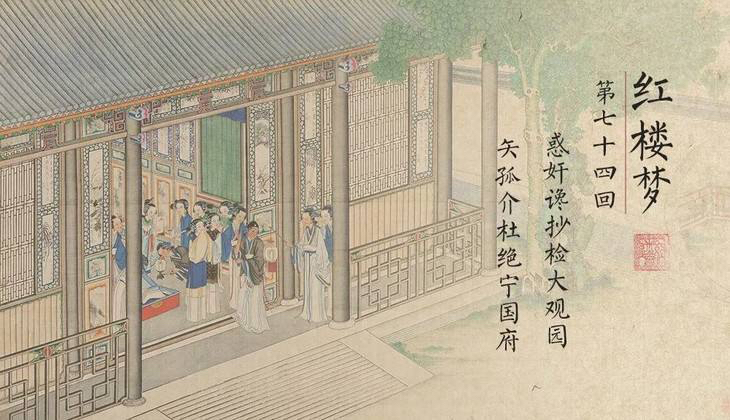 红楼梦
第七十四回
惑奸谗抄检大观园
矢孤介杜绝宁国府